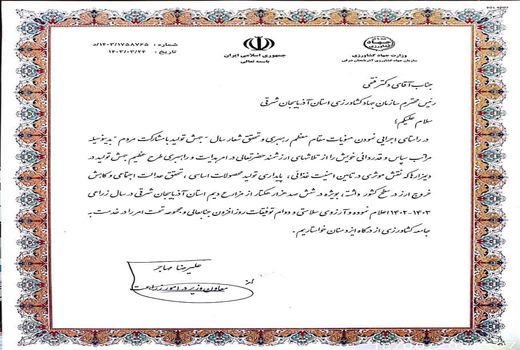 شماره : ۱۴۰۳/۱۷۵۸۷۶۵/د
تاریخ : ۱۴۰۳/۰۳/۲۲
جمهوری اسلامی ایران
باسمه تعالی
جهاد
کشاورزی
وزارت جهاد کشاورزی
سازمان جهاد کشاورزی آذربایجان شرقی
جناب آقای دکتر فتحی
رئیس محترم سازمان جهاد کشاورزی استان آذربایجان شرقی
سلام علیکم؛
در راستای اجرایی نمودن منویات مقام معظم رهبری و تحقق شعار سال "جهش تولید با مشارکت مردم" بدینوسیله
مراتب سپاس و قدردانی خویش را از تلاشهای ارزشمند حضرتعالی در امر هدایت و راهبری طرح عظیم جهش تولید در
دیمزارها که نقش موثری در تامین امنیت غذایی، پایداری تولید محصولات اساسی، تحقق عدالت اجتماعی و کاهش
خروج ارز در سطح کشور داشته، بویژه در شش صد هزار هکتار از مزارع دیم استان آذربایجان شرقی در سال زراعی
۱۴۰۳-۱۴۰۲ اعلام نموده و آرزوی سلامتی و دوام توفیقات روزافزون جنابعالی و مجموعه تحت امر را در خدمت به
جامعه کشاورزی از درگاه ایزد منان خواستاریم.
علیرضا صابر
معاون وزیر در امور زراعت